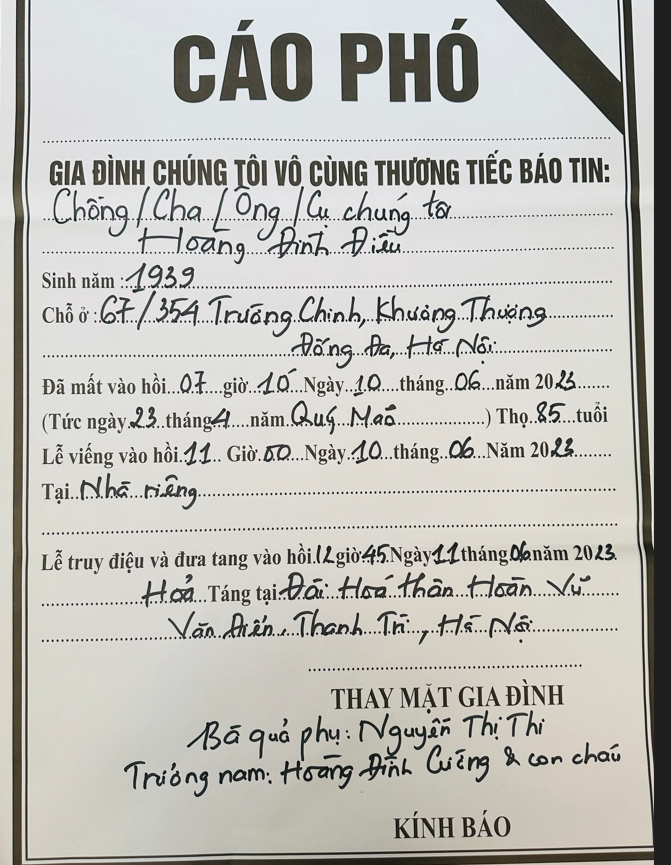 CÁO PHÓ
GIA ĐÌNH CHÚNG TÔI VÔ CÙNG THƯƠNG TIẾC BÁO TIN:
Chồng / Cha / Ông / Cụ chúng tôi
Hoàng Đình Điều
Sinh năm : 1939
Chỗ ở : 67/354 Trường Chinh, Khương Thượng
Đống Đa, Hà Nội
Đã mất vào hồi 07 giờ 10 Ngày 10 tháng 06 năm 2023
(Tức ngày 23 tháng 4 năm Quý Mão ) Thọ 85 tuổi
Lễ viếng vào hồi 11 Giờ 00 Ngày 10 tháng 06 Năm 2023
Tại Nhà riêng
Lễ truy điệu và đưa tang vào hồi 12 giờ 45 Ngày 11 tháng 06 năm 2023
Hoả Táng tại Đài Hoá thân Hoàn Vũ
Văn Điển, Thanh Trì, Hà Nội
THAY MẶT GIA ĐÌNH
Bà quả phụ: Nguyễn Thị Thi
Trưởng nam: Hoàng Đình Cường & con cháu
KÍNH BÁO